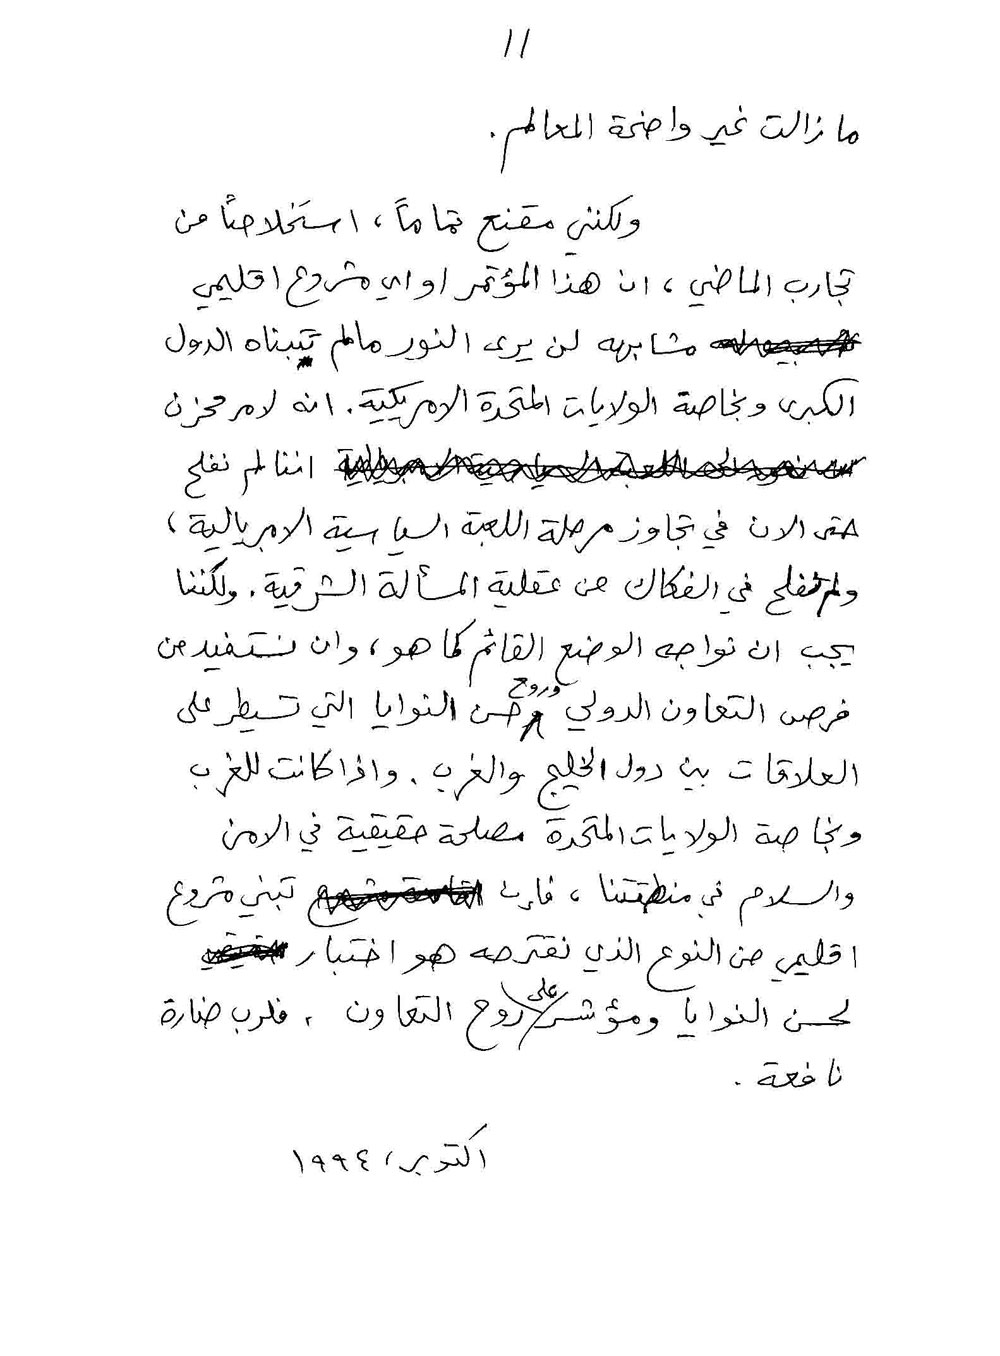 ١١
ما زالت غير واضحة المعالم.
ولكنني مقتنع تماماً، استخلاصاً من
تجارب الماضي، ان هذا المؤتمر او اي مشروع اقليمي
مشابهه لن يرى النور مالم تتبناه الدول
الكبرى وبخاصة الولايات المتحدة الامريكية. انه لامر محزن
اننا لم نفلح
حتى الان في تجاوز مرحلة اللعبة السياسية الامبريالية،
ولم نفلح في الفكاك من عقلية المسألة الشرقية. ولكننا
يجب ان نواجه الوضع القائم كما هو، وان نستفيد من
فرص التعاون الدولي وروح حسن النوايا التي تسيطر على
العلاقات بين دول الخليج والغرب. واذا كانت للغرب
وبخاصة الولايات المتحدة مصلحة حقيقية في الامن
والسلام في منطقتنا، فإن تبني مشروع
اقليمي من النوع الذي نقترحه هو اختبار
لحسن النوايا ومؤشر على روح التعاون. فلرب ضارة
نافعة.
اكتوبر، ١٩٩٤